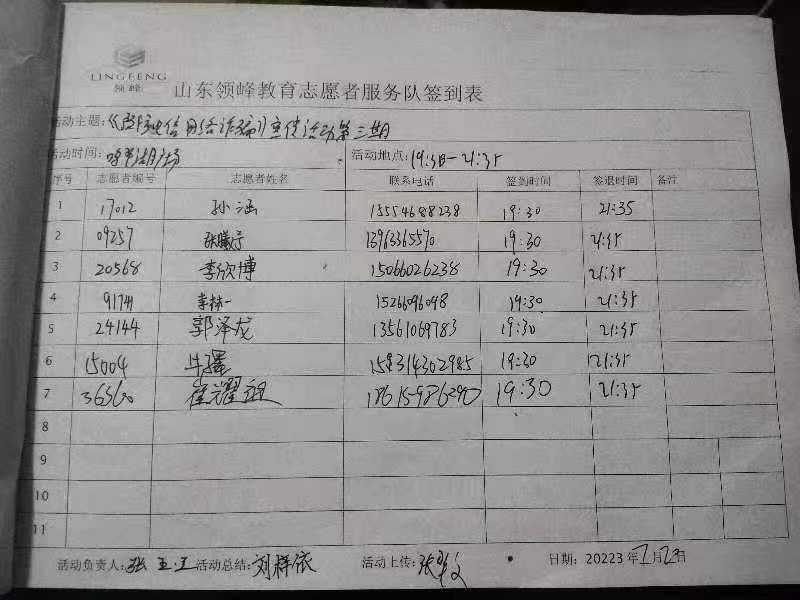 LINGFENG
领峰
山东领峰教育志愿者服务队签到表
活动主题：《电信网络诈骗》宣传活动第三期
活动时间： 活动地点：19:30-21:35
序号 志愿者编号 志愿者姓名 联系电话 签到时间 签退时间 备注
1 17012 孙涵 15554688238 19:30 21:35
2 09257 13963365570 19:30 21:35
3 20568 李欣博 15066026238 19:30 21:35
4 李林一 15266096098 19:30 21:35
5 24144 郭泽龙 13561069783 19:30 21:35
6 15004 19:30 21:35
7 崔耀 19:30 21:35
8
9
10
11
活动负责人： 活动总结：刘祥依 活动上传： 日期：20223年 月2日